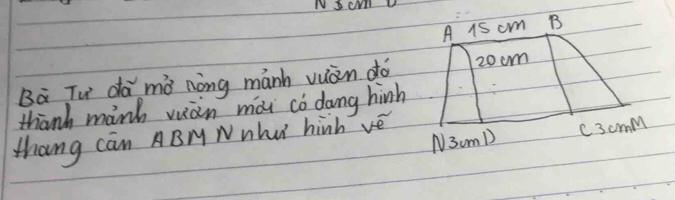 N 3cm D
A 15 cm B
20 cm
Bà Tư đã mở rộng mảnh vườn đó
thành mảnh vườn mới có dạng hình
thang cân ABMN như hình vẽ
N 3cm D C 3cm M